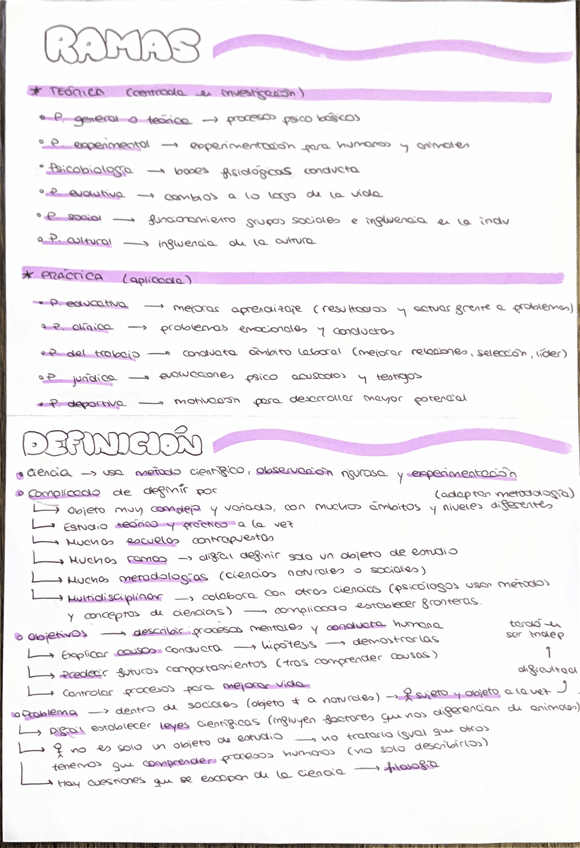 RAMAS
* TEÓRICA (centrada en investigación)
• P. general o teórica → procesos psico básicos
• P. experimental → experimentación para humanos y animales
• Psicobiología → bases fisiológicas conducta
• P. evolutiva → cambios a lo largo de la vida
• P. social → funcionamiento grupos sociales e influencia en la indv
• P. cultural → influencia de la cultura
* PRÁCTICA (aplicada)
• P. educativa → mejorar aprendizaje (resultados y actuar frente a problemas)
• P. clínica → problemas emocionales y conductas
• P. del trabajo → conducta ámbito laboral (mejorar relaciones, selección, líder)
• P. jurídica → evaluaciones psico acusados y testigos
• P. deportiva → motivación para desarrollar mayor potencial
DEFINICIÓN
• Ciencia → usa método científico, observación rigurosa y experimentación
• Complicado de definir por (adaptar metodología)
↳ Objeto muy complejo y variado, con muchos ámbitos y niveles diferentes
↳ Estudio teórico y práctico a la vez
↳ Muchas escuelas contrapuestas
↳ Muchas ramas → difícil definir solo un objeto de estudio
↳ Muchas metodologías (ciencias naturales o sociales)
↳ Multidisciplinar → colabora con otras ciencias (psicólogos usan métodos
y conceptos de ciencias) → complicado establecer fronteras.
• Objetivos → describir procesos mentales y conducta humana
↳ Explicar causas conducta → hipótesis → demostrarlas
↳ Predecir futuros comportamientos (tras comprender causas)
↳ Controlar procesos para mejorar vida
tardó en
ser indep
↑
dificultad
• Problema → dentro de sociales (objeto ≠ a naturales) → sujeto y objeto a la vez
↳ Difícil establecer leyes científicas (influyen factores que nos diferencian de animales)
↳ no es solo un objeto de estudio → no tratarlo igual que otros
tenemos que comprender procesos humanos (no solo describirlos)
↳ Hay cuestiones que se escapan de la ciencia → filosofía